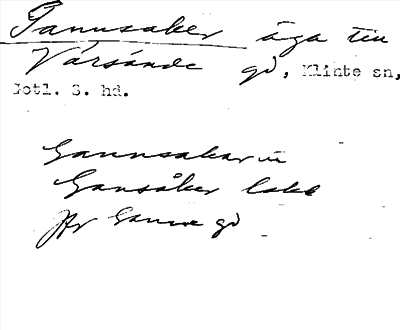 Gannsaker äga till
Vársände gd, Klinte sn,
Gotl. S. hd.
Gannsakar
Gansåker
Jfr Ganne gd